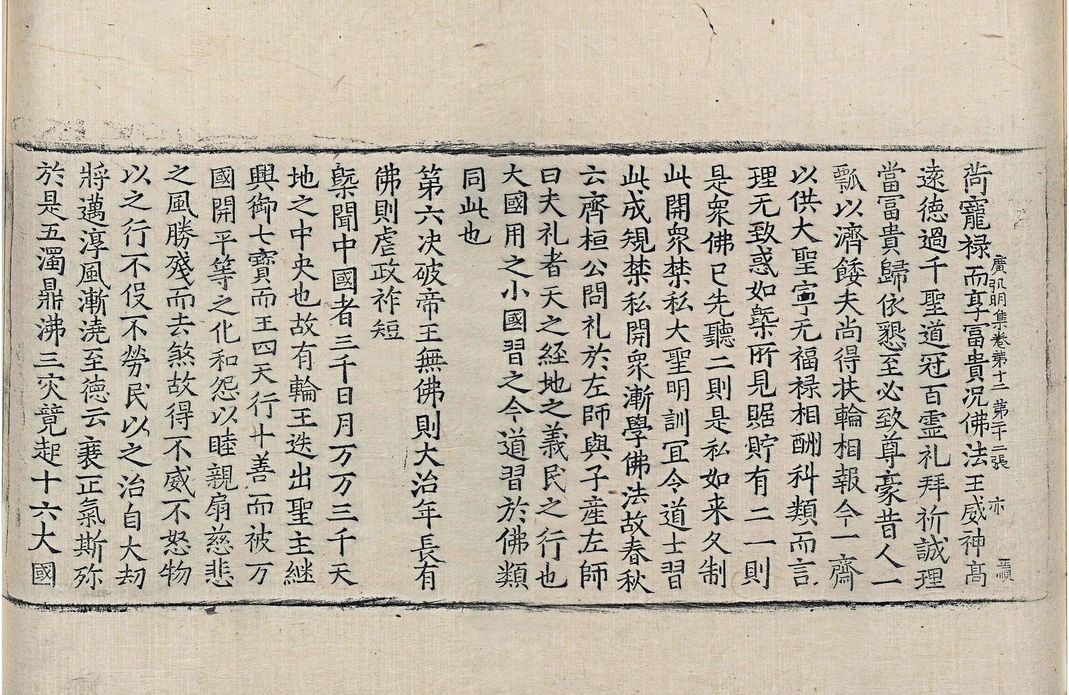 廣弘明集卷第十二 第廿二張 亦
尚寵禄而享冨貴况佛法王威神髙
遠德過千聖道冠百霊礼拜祈誠理
當冨貴歸依懇至必致尊豪昔人一
瓢以濟餧夫尚得扶輪相報今一齋
以供大聖寜无福禄相酬科類而言
理无致惑如槩所見賜貯有二一則
是衆佛已先聽二則是私如来久制
此開衆禁私大聖明訓冝令道士習
此成規禁私開衆漸學佛法故春秋
云齊桓公問礼於左師與子産左師
曰夫礼者天之経地之義民之行也
大國用之小國習之今道習於佛類
同此也
第六决破帝王無佛則大治年長有
佛則虐政祚短
槩聞中國者三千日月万万三千天
地之中央也故有輪王迭出聖主継
興御七寳而王四天行十善而被万
國開平等之化和怨以睦親扇慈悲
之風勝殘而去煞故得不威不怒物
以之行不伇不勞民以之治自大刼
將邁淳風漸澆至德云衰正氣斯殄
於是五濁鼎沸三灾競起十六大國